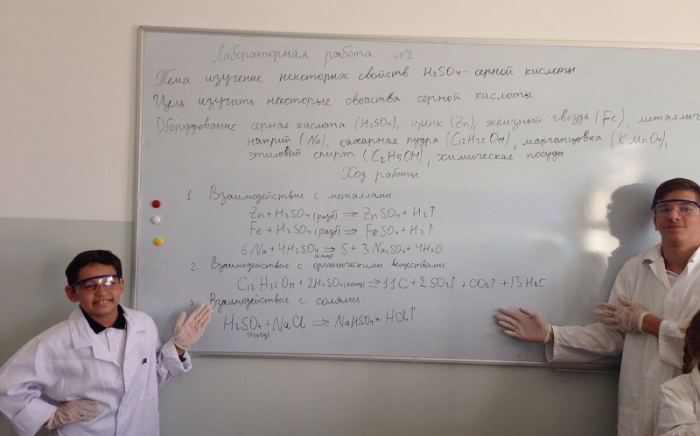 Лабораторная работа №2
Тема изучение некоторых свойств H₂SO₄ - серной кислоты
Цель изучить некоторые свойства серной кислоты
Оборудование: серная кислота (H₂SO₄), цинк (Zn), железный гвоздь (Fe), металлич
натрий (Na), сахарная пудра (C₁₂H₂₂O₁₁), марганцовка (KMnO₄),
этиловый спирт (C₂H₅OH), химическая посуда
Ход работы
1. Взаимодействие с металлами
Zn + H₂SO₄ (разб) => ZnSO₄ + H₂↑
Fe + H₂SO₄ (разб) => FeSO₄ + H₂↑
6Na + 4H₂SO₄ (конц) => S + 3Na₂SO₄ + 4H₂O
2. Взаимодействие с органическими веществами.
C₁₂H₂₂O₁₁ + 2H₂SO₄ (конц) => 11C + 2SO₂↑ + CO₂↑ + 13H₂O
3. Взаимодействие с солями:
H₂SO₄ (конц) + NaCl => NaHSO₄ + HCl↑